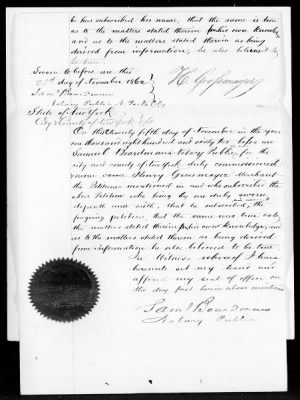 he has subscribed his name, that the same is true
as to the matters stated therein of his own knowledge
and as to the matters stated therein as being
derived from information, he also believes to
be true
Sworn to before me this
25th day of November 1862
Saml Boardman
Notary Public N York Co
State of New York
City & County of New York
On this twenty fifth day of November in the year
one thousand eight hundred and sixty two before me
Samuel Boardman Notary Public for the
city and county of New York duly commissioned
and sworn came Henry Merchant
the Petitioner mentioned in and who subscribed the
above Petition who being by me duly sworn
deposeth and saith, that he subscribed the
foregoing petition, that the same was true as to
the matters stated therein of his own knowledge, and
as to the matters stated therein as being derived
from information he also believed to be true
In Witness whereof I have
hereunto set my hand and
affixed my seal of office on
the day first herein above mentioned
Saml Boardman
Notary Public